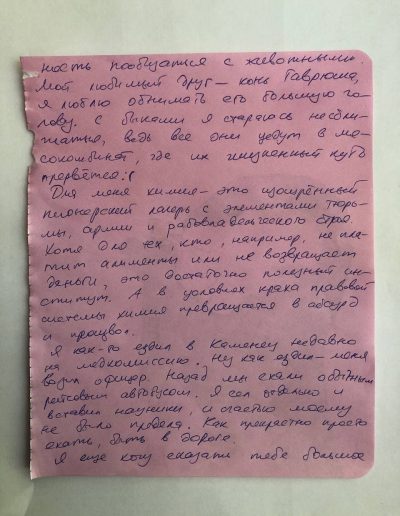 ность пообщаться с животными.
Мой любимый друг – конь Гаврюша,
я люблю обнимать его большую го-
лову. С быками я стараюсь не сбли-
жаться, ведь все они уедут в мя-
сокомбинат, где их жизненный путь
прервётся :(
Для меня химия – это изощрённый
пионерский лагерь с элементами тюрь-
мы, армии и рабовладельческого строя.
Хотя для тех, кто, например, не пла-
тит алименты или не возвращает
деньги, это достаточно полезный ин-
ститут. А в условиях краха правовой
системы химия превращается в абсурд
и произвол.
Я как-то ездил в Каменец недавно
на медкомиссию. Ну как ездил – меня
возил офицер. Назад мы ехали обычным
рейсовым автобусом. Я сел отдельно и
вставил наушники, и счастью моему
не было предела. Как прекрасно просто
ехать, быть в дороге.
Я еще хочу сказать тебе большое